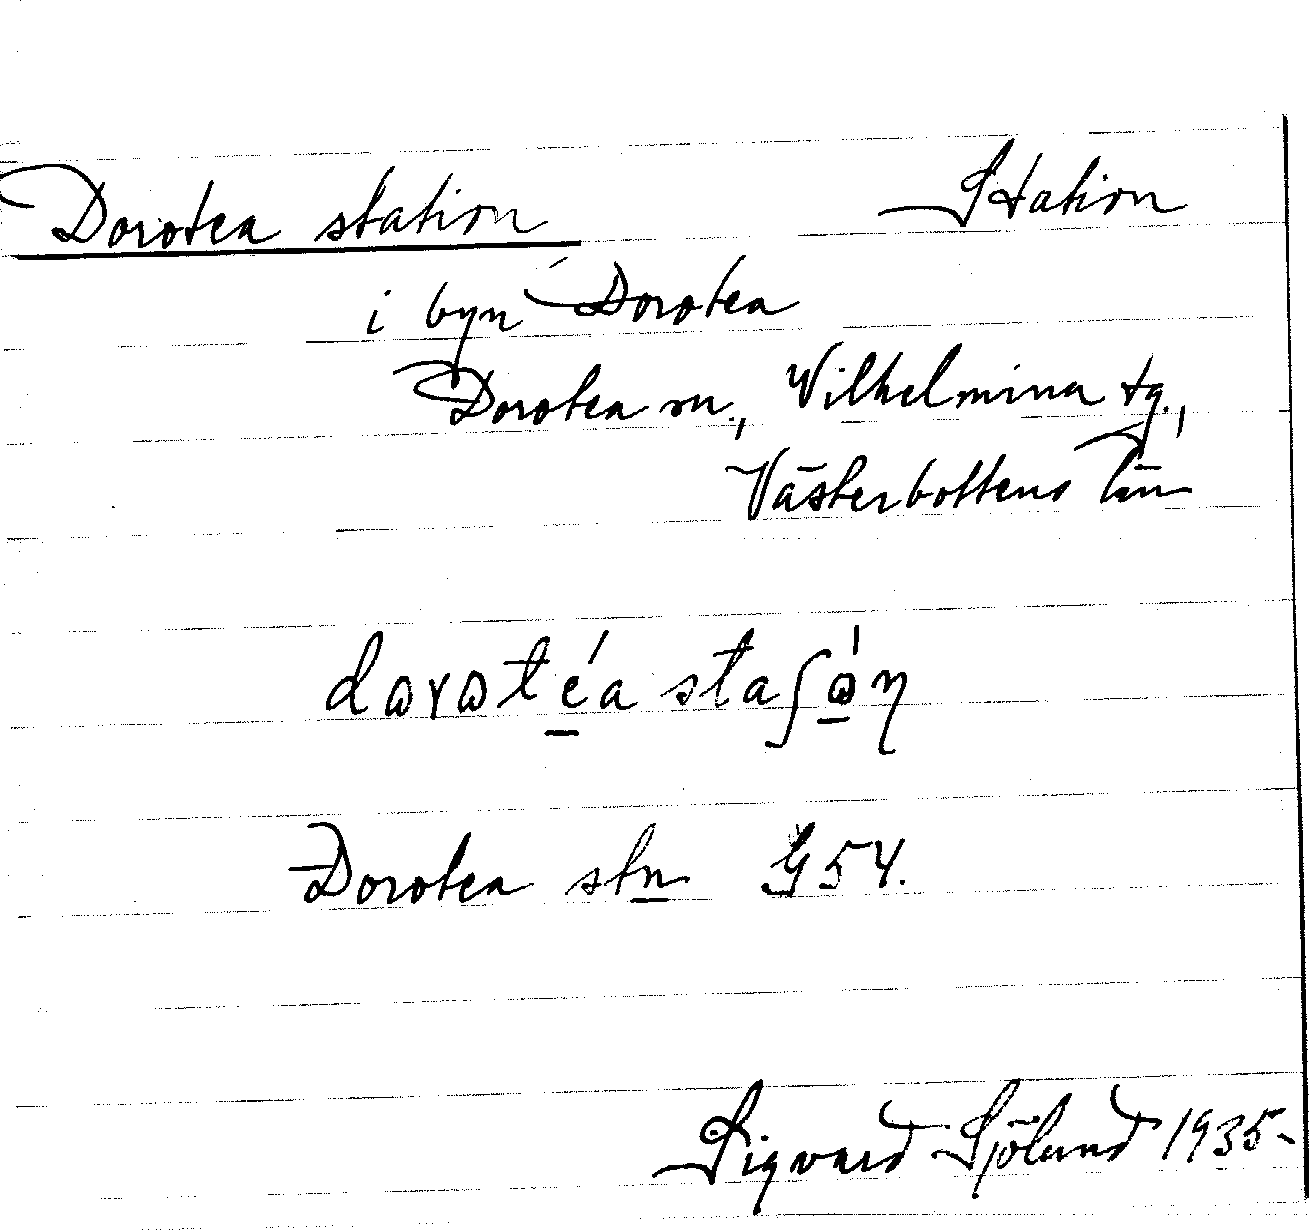 Dorotea station Station
i byn Dorotea
Dorotea sn., Vilhelmina tg.,
Västerbottens län
Dorotea stn G54.
Sigvard Sjölund 1935